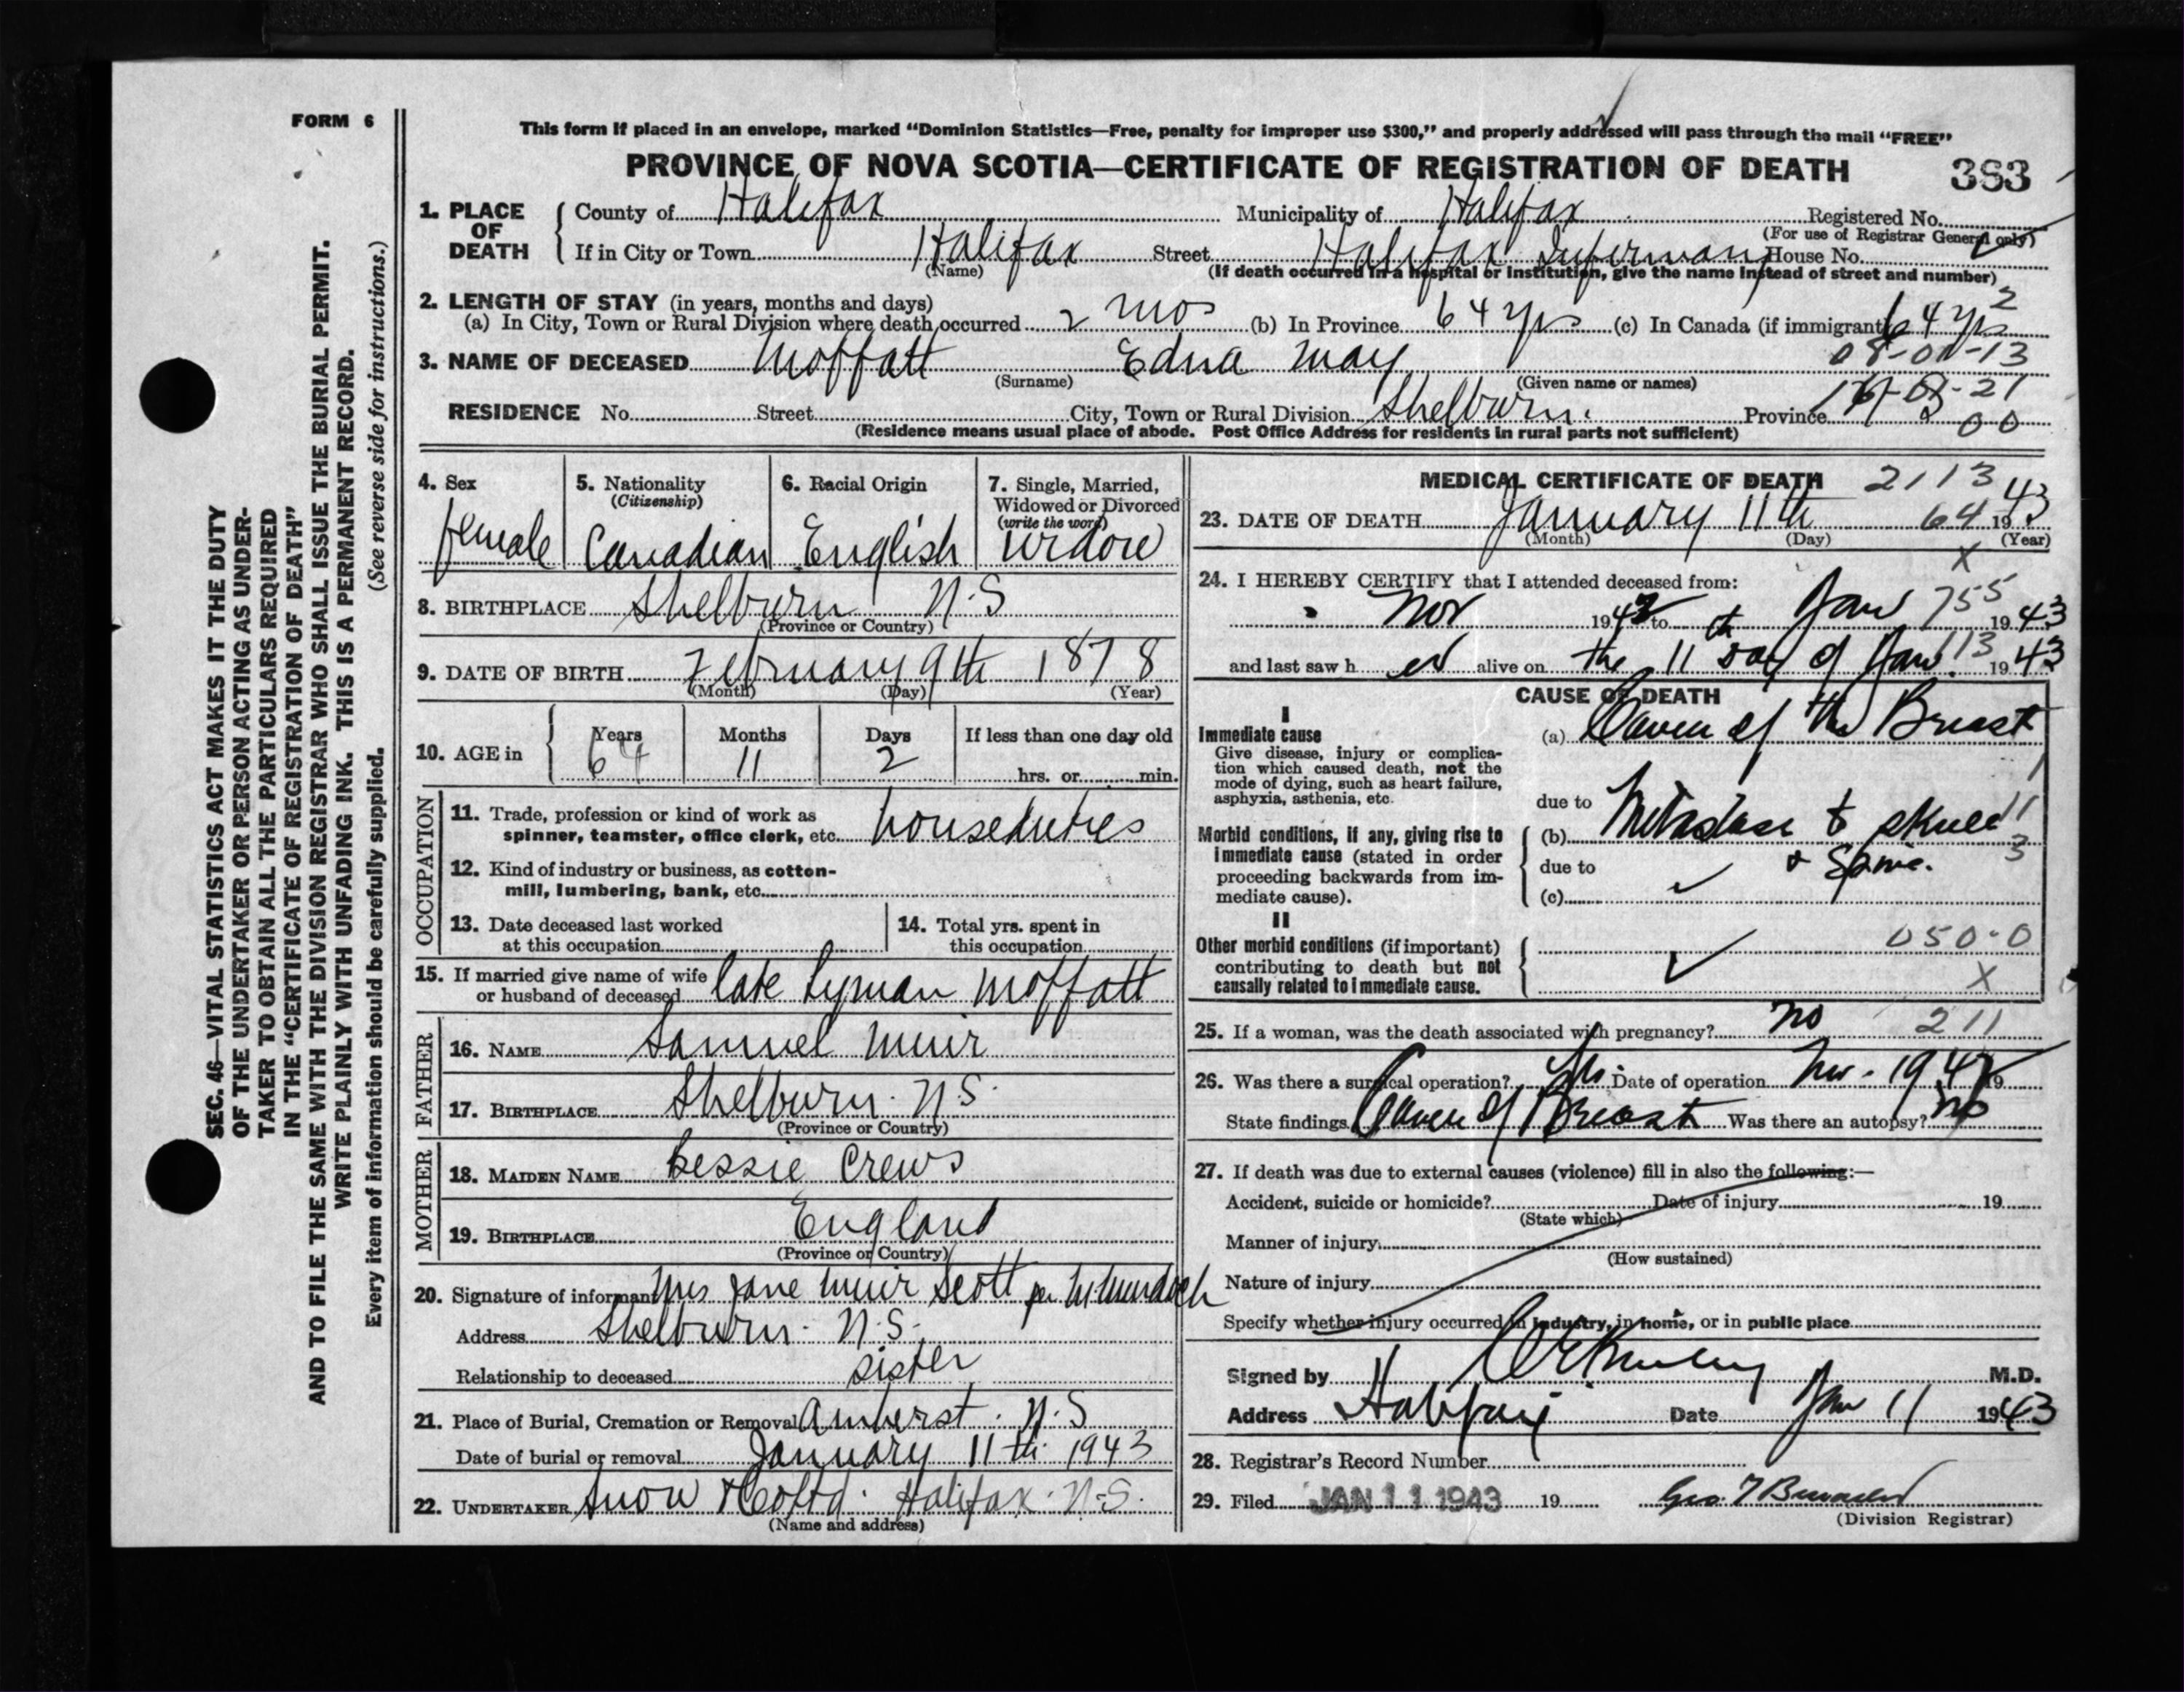 FORM 6
SEC. 46—VITAL STATISTICS ACT MAKES IT THE DUTY
OF THE UNDERTAKER OR PERSON ACTING AS UNDER-
TAKER TO OBTAIN ALL THE PARTICULARS REQUIRED
IN THE "CERTIFICATE OF REGISTRATION OF DEATH"
AND TO FILE THE SAME WITH THE DIVISION REGISTRAR WHO SHALL ISSUE THE BURIAL PERMIT.
WRITE PLAINLY WITH UNFADING INK. THIS IS A PERMANENT RECORD.
Every item of information should be carefully supplied. (See reverse side for instructions.)
This form if placed in an envelope, marked "Dominion Statistics—Free, penalty for improper use $300," and properly addressed will pass through the mail "FREE"
PROVINCE OF NOVA SCOTIA—CERTIFICATE OF REGISTRATION OF DEATH 383
1. PLACE OF DEATH County of Halifax Municipality of Halifax Registered No.
(For use of Registrar General only)
If in City or Town Halifax Street Halifax Infirmary House No.
(Name) (If death occurred in a hospital or institution, give the name instead of street and number)
2. LENGTH OF STAY (in years, months and days) 2
(a) In City, Town or Rural Division where death occurred 2 mos (b) In Province 64 yrs (c) In Canada (if immigrant) 64 yrs
08-01-13
3. NAME OF DECEASED Moffatt Edna May
(Surname) (Given name or names)
RESIDENCE No. Street City, Town or Rural Division Shelburn. Province
00
(Residence means usual place of abode. Post Office Address for residents in rural parts not sufficient)
4. Sex female
5. Nationality (Citizenship) Canadian
6. Racial Origin English
7. Single, Married, Widowed or Divorced (write the word) widow
8. BIRTHPLACE Shelburn N.S
(Province or Country)
9. DATE OF BIRTH February 9th 1878
(Month) (Day) (Year)
10. AGE in Years 64 Months 11 Days 2 If less than one day old hrs. or min.
OCCUPATION
11. Trade, profession or kind of work as
spinner, teamster, office clerk, etc. houseduties
12. Kind of industry or business, as cotton-
mill, lumbering, bank, etc.
13. Date deceased last worked
at this occupation
14. Total yrs. spent in
this occupation
15. If married give name of wife
or husband of deceased late Lyman Moffatt
FATHER
16. NAME Samuel Muir
17. BIRTHPLACE Shelburn. N.S.
(Province or Country)
MOTHER
18. MAIDEN NAME Bessie Crews
19. BIRTHPLACE England
(Province or Country)
20. Signature of informant Mrs Jane Muir Scott per M. Murdoch
Address Shelburn. N.S.
Relationship to deceased sister
21. Place of Burial, Cremation or Removal Amherst. N.S
Date of burial or removal January 11th 1943
22. UNDERTAKER Snow & Co Ltd. Halifax. N.S.
(Name and address)
MEDICAL CERTIFICATE OF DEATH 2113
23. DATE OF DEATH January 11th 64 1943
(Month) (Day) (Year)
X
24. I HEREBY CERTIFY that I attended deceased from:
Nov 1942 to Jan 755 1943
and last saw h er alive on the 11th day of Jan. 113 1943
CAUSE OF DEATH
I
Immediate cause
Give disease, injury or complica-
tion which caused death, not the
mode of dying, such as heart failure,
asphyxia, asthenia, etc.
(a) Cancer of the Breast
1
due to
Morbid conditions, if any, giving rise to
immediate cause (stated in order
proceeding backwards from im-
mediate cause).
(b) Metastases to skull 11
due to & Spine. 3
(c)
II
Other morbid conditions (if important)
contributing to death but not
causally related to immediate cause.
050.0
X
25. If a woman, was the death associated with pregnancy? no 211
26. Was there a surgical operation? Yes. Date of operation Nov. 1942 19
State findings Cancer of Breast Was there an autopsy? no
27. If death was due to external causes (violence) fill in also the following:—
Accident, suicide or homicide? Date of injury 19
(State which)
Manner of injury
(How sustained)
Nature of injury
Specify whether injury occurred in industry, in home, or in public place
Signed by M.D.
Address Halifax Date Jan 11 1943
28. Registrar's Record Number
29. Filed JAN 11 1943 19 Geo. T
(Division Registrar)